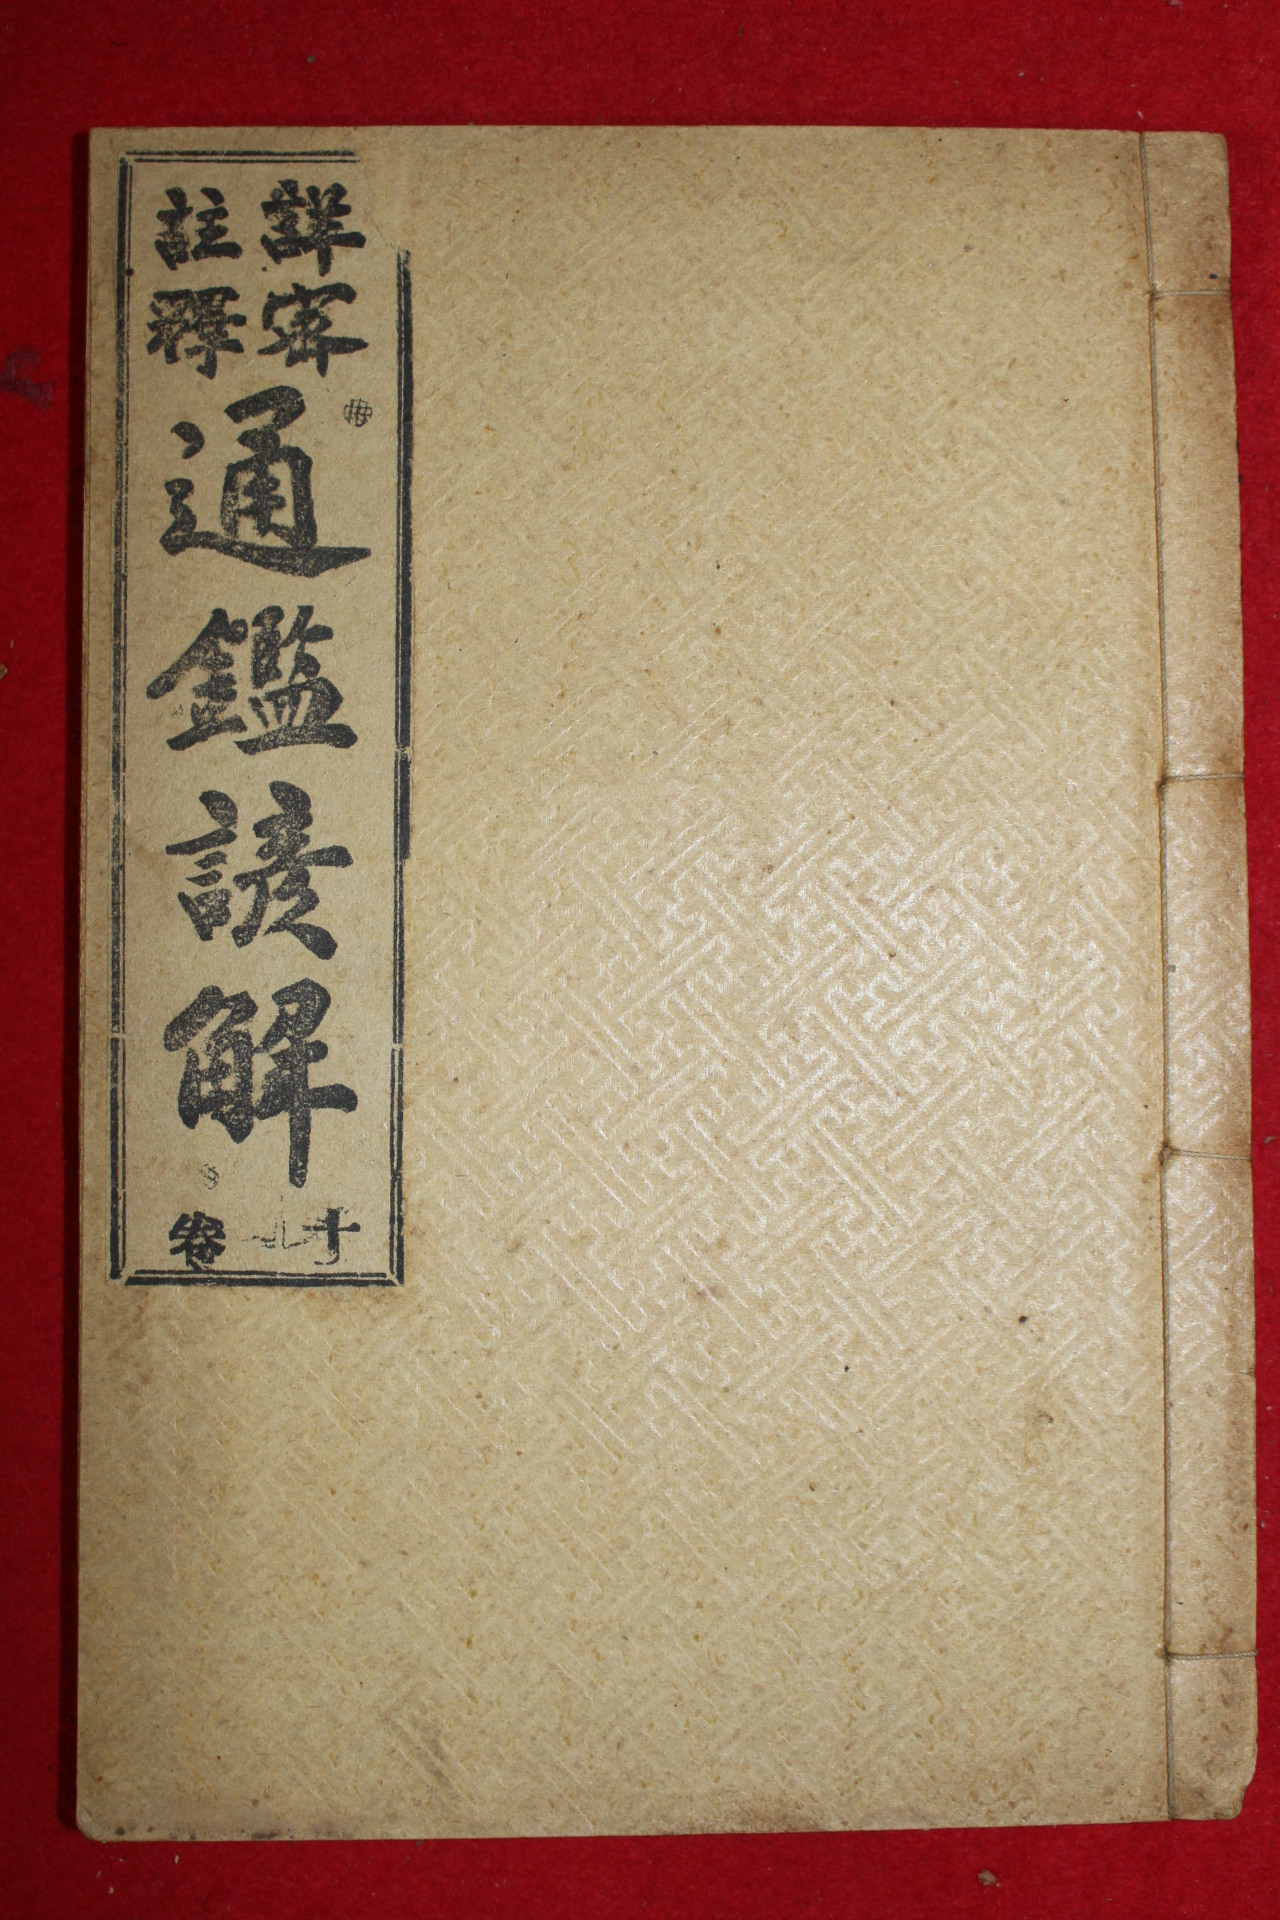 詳密
註釋
通鑑諺解
十 卷